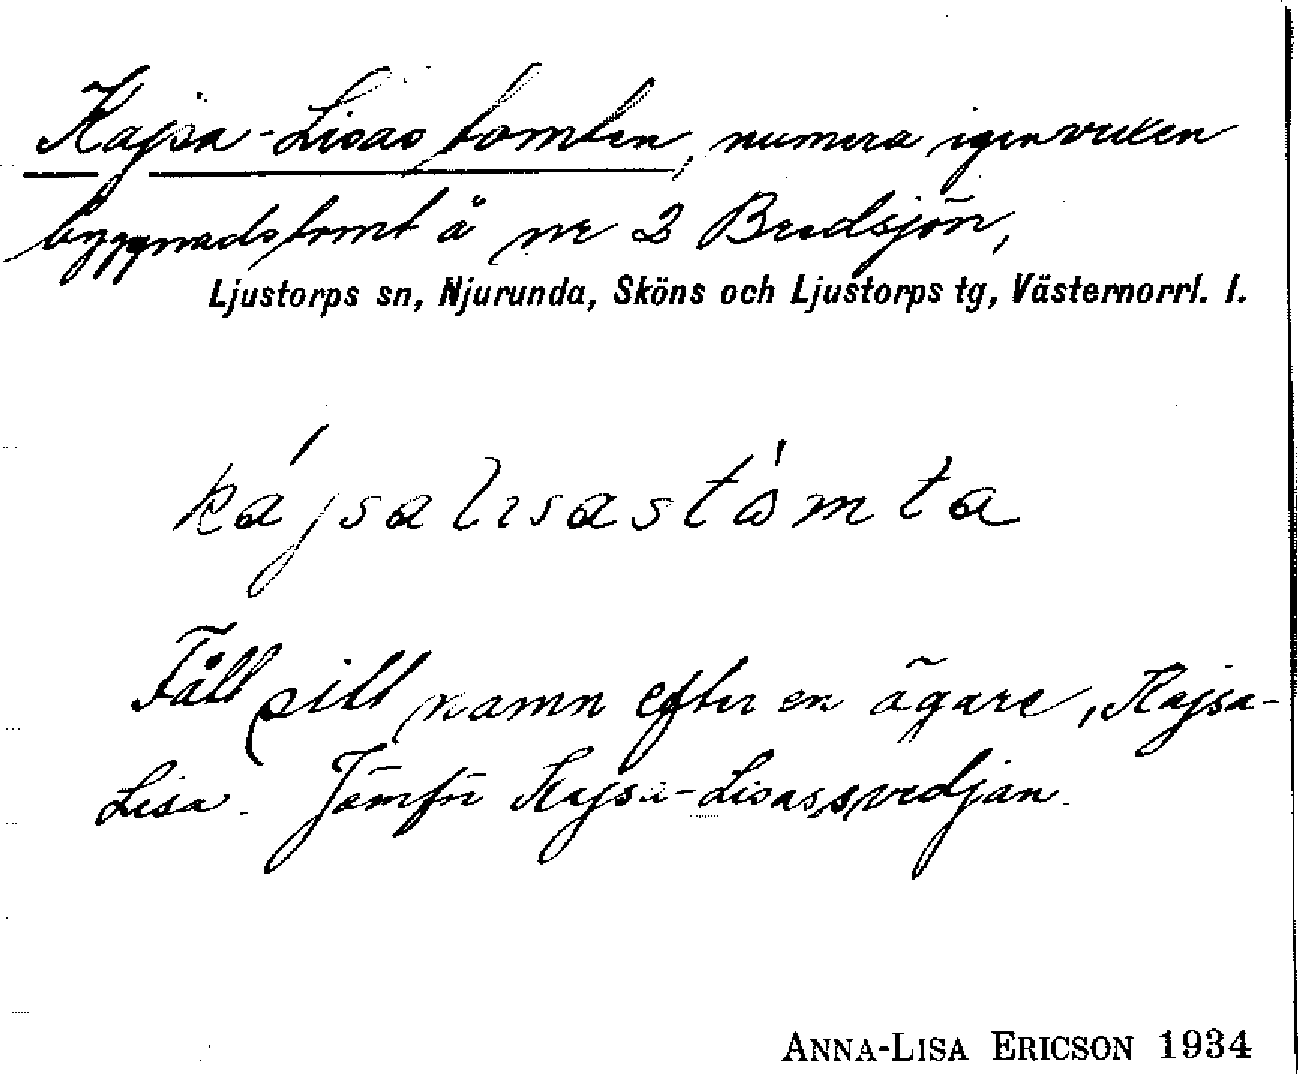 Kajsa-Lisastomten, numera igenvuxen
byggnadstomt å nr 2 Bredsjön,
Ljustorps sn, Njurunda, Sköns och Ljustorps tg, Västernorrl. l.
kájsalısastòmta
Fått sitt namn efter en ägare, Kajsa-
Lisa. Jämför Kajsa-Lisassvedjan.
ANNA-LISA ERICSON 1934